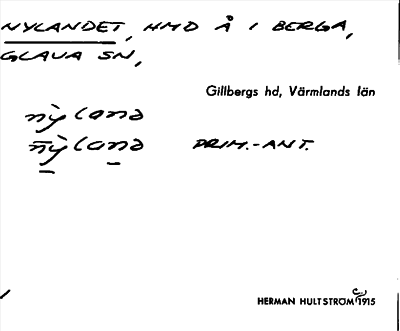 NYLANDET, HMD Å I BERGA,
GLAVA SN,
Gillbergs hd, Värmlands län
nỳland
nỳland PRIM.-ANT.
HERMAN HULTSTRÖM 1915